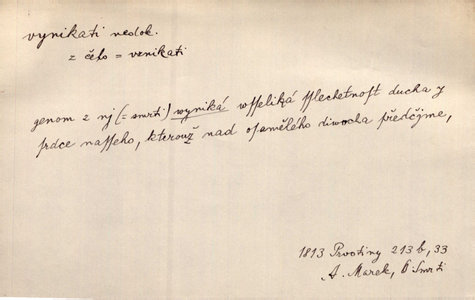 vynikati nedok.
z čeho = vznikati
genom z nj (= smrti) wyniká wsseliká sslechetnost ducha y
srdce nasseho, kterouž nad osamělého diwocha předčjme,
1813 Prvotiny 213b, 33
A. Marek, O Smrti